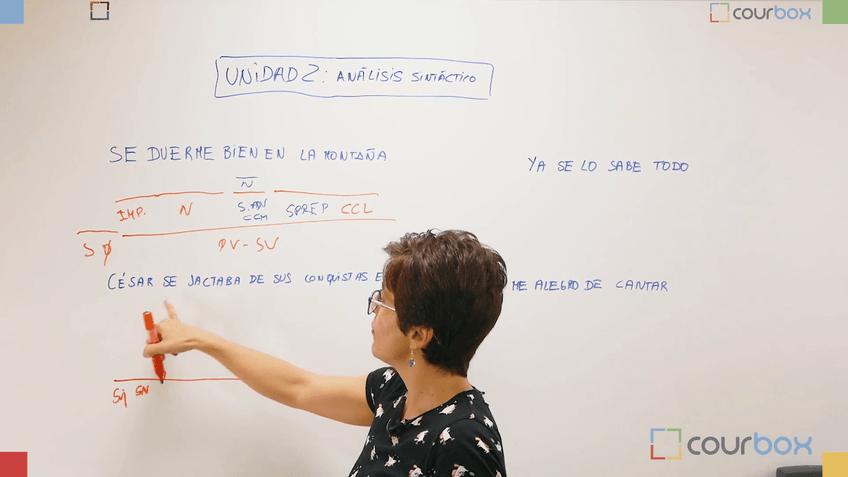 courbox
UNIDAD 2: ANÁLISIS SINTÁCTICO
SE DUERME BIEN EN LA MONTAÑA
YA SE LO SABE TODO
N
IMP. N S.ADV SPREP CCL
CCM
S Ø PV-SV
CÉSAR SE JACTABA DE SUS CONQUISTAS E
ME ALEGRO DE CANTAR
Sj SN
courbox